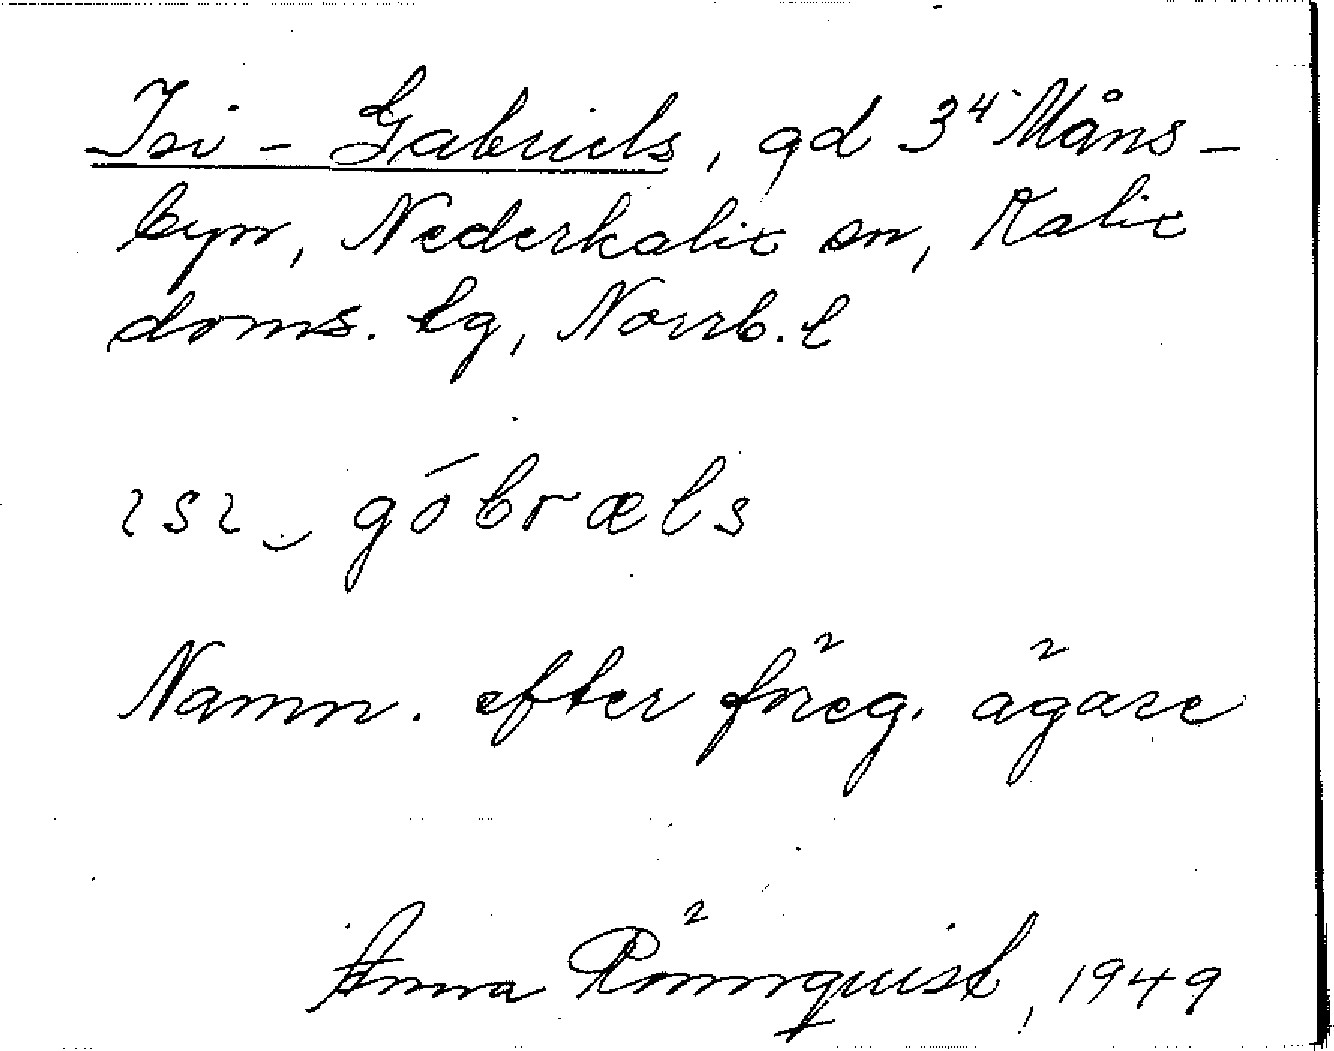 Isi - Gabriels, gd 3⁴ Måns-
byn, Nederkalix sn, Kalix
doms. lg, Norrb. l
ɩsɩ‿góbræls
Namn. efter föreg. ägare
Anna Rönnquist, 1949